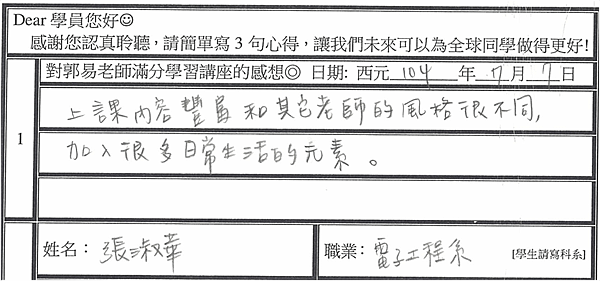 Dear 學員您好☺
感謝您認真聆聽，請簡單寫 3 句心得，讓我們未來可以為全球同學做得更好!
對郭易老師滿分學習講座的感想◎ 日期: 西元 104 年 7 月 7 日
1
上課內容豐富和其它老師的風格很不同,
加入很多日常生活的元素。
姓名： 張淑華
職業： 電子工程系 [學生請寫科系]